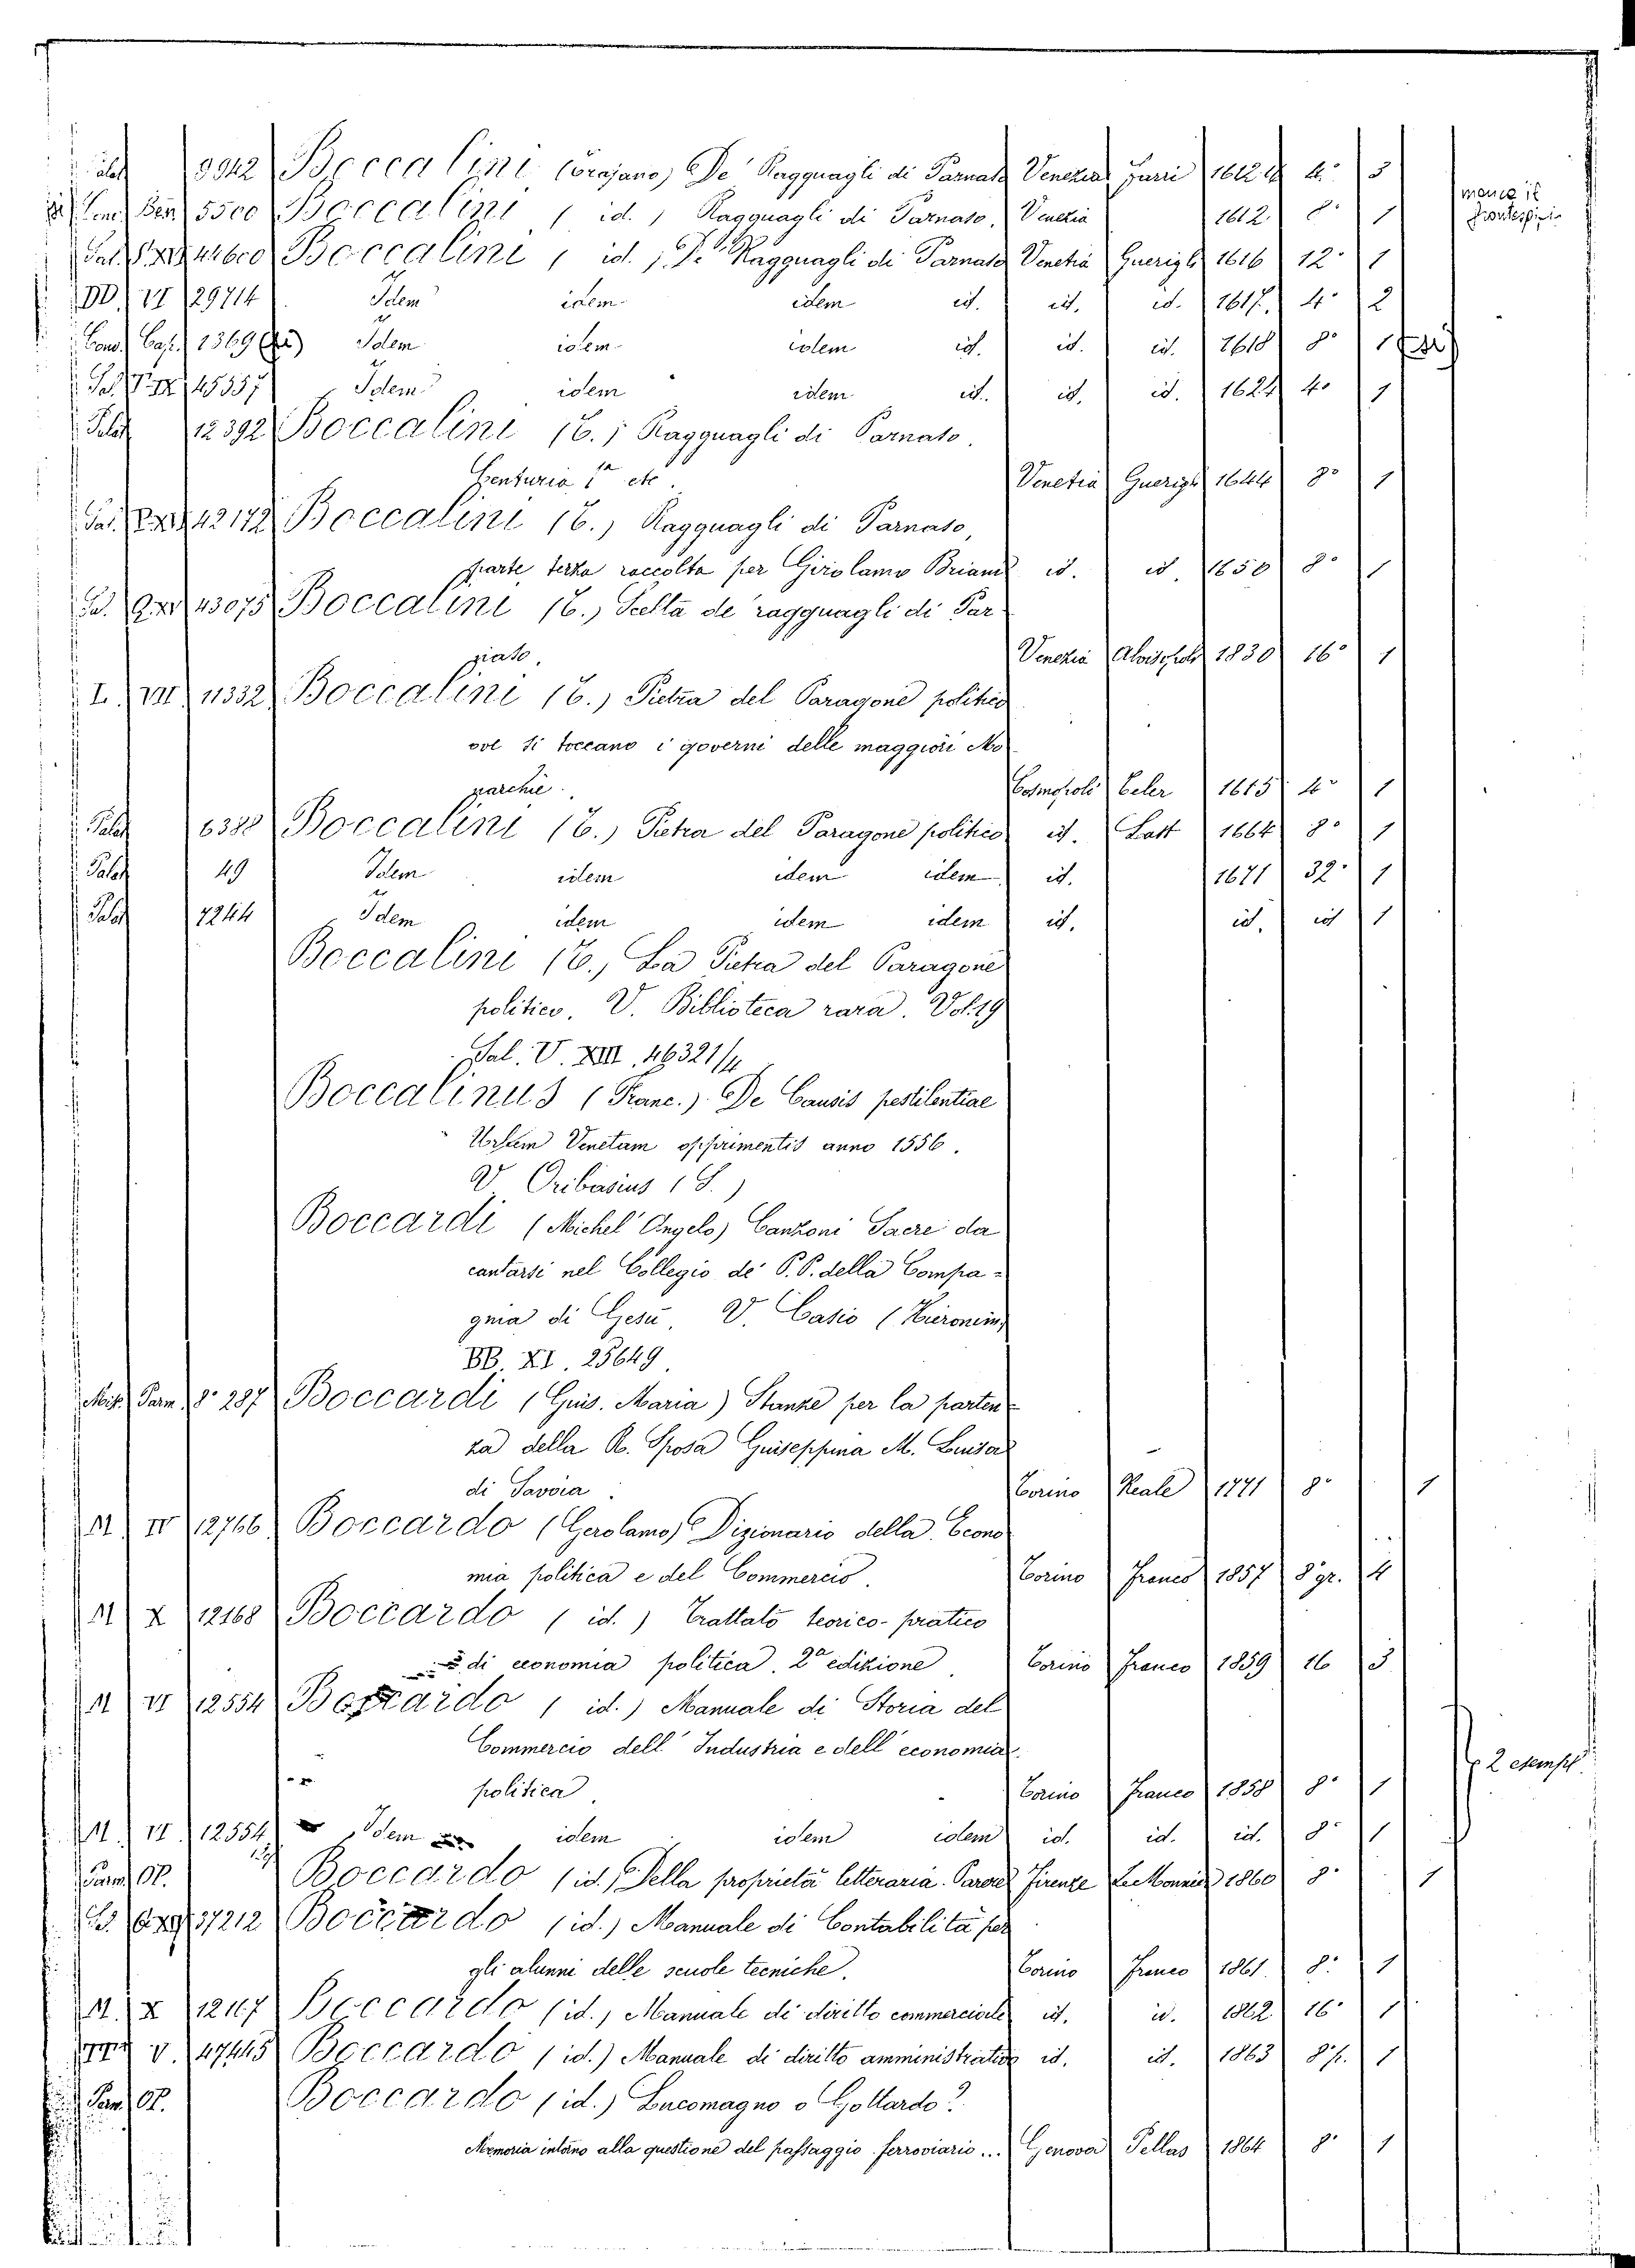 Palat 9942 Boccalini (Trajano) De' Ragguagli di Parnaso Venezia Farri 1612 4° 3
Ben 5500 Boccalini ( id. ) Ragguagli di Parnaso, Venetia 1612. 8° 1 manca il frontespizio
Sal. 44600 Boccalini ( id. ) De' Ragguagli di Parnaso Venetia Guerigli 1616 12° 1
DD. VI 29714 Idem idem idem id. id. id. 1617. 4° 2
Cons. Cap. 1369 Idem idem idem id. id. id. 1618 8° 1
45357 Idem idem idem id. id. id. 1624 4° 1
Palat 12392 Boccalini (T.) Ragguagli di Parnaso.
Centuria 1a etc. Venetia Guerigli 1644 8° 1
Sal. 42172 Boccalini (T.) Ragguagli di Parnaso,
parte terza raccolta per Girolamo Briani id. id. 1650 8° 1
43075 Boccalini (T.) Scelta de' ragguagli di Par
naso. Venezia Alvisopoli 1830 16° 1
I. VII 11332 Boccalini (T.) Pietra del Paragone politico
ove si toccano i governi delle maggiori Mo
narchie. Cosmopoli Teler 1615 4° 1
Palat 6380 Boccalini (T.) Pietra del Paragone politico id. Last 1664 8° 1
Palat 49 Idem idem idem idem id. 1671 32° 1
Palat 7244 Idem idem idem idem id. id. id 1
Boccalini (T.) La Pietra del Paragone
politico. V. Biblioteca rara. Vol. 19
Sal. V. XIII. 46321/4
Boccalinus (Franc.) De Causis pestilentiae
Urbem Venetam opprimentis anno 1556.
V. Oribasius (S.)
Boccardi (Michel' Angelo) Canzoni Sacre da
cantarsi nel Collegio de' P.P. della Compa-
gnia di Gesù. V. Casio (Hieronim)
BB. XI. 25649.
Misc. Parm. 8° 287 Boccardi (Guis. Maria) Stanze per la parten
za della R. Sposa Guiseppina M. Luisa
di Savoia. Torino Reale 1771 8° 1
M IV 12766 Boccardo (Gerolamo) Dizionario della Econo
mia politica e del Commercio. Torino Franco 1857 8° gr. 4
M X 12168 Boccardo ( id. ) Trattato teorico-pratico
di economia politica. 2a edizione. Torino Franco 1859 16 3
M VI 12554 Boccardo ( id. ) Manuale di Storia del
Commercio dell' Industria e dell' economia
politica. Torino Franco 1858 8° 1 2 esempl.
M. VI 12554 Idem idem idem idem id. id. id. 8° 1
Parm. Op. Boccardo (id.) Della proprietà letteraria. Parere Firenze Le Monnier 1860 8° 1
37212 Boccardo (id.) Manuale di Contabilità per
gli alunni delle scuole tecniche. Torino Franco 1861. 8° 1
M. X 12167 Boccardo (id.) Manuale di diritto commerciale id. id. 1862 16° 1
V. 47445 Boccardo (id.) Manuale di diritto amministrativo id. id. 1863 8° p. 1
Parm. Op. Boccardo (id.) Lucomagno o Gottardo?
Memoria intorno alla questione del passaggio ferroviario... Genova Pellas 1864 8° 1